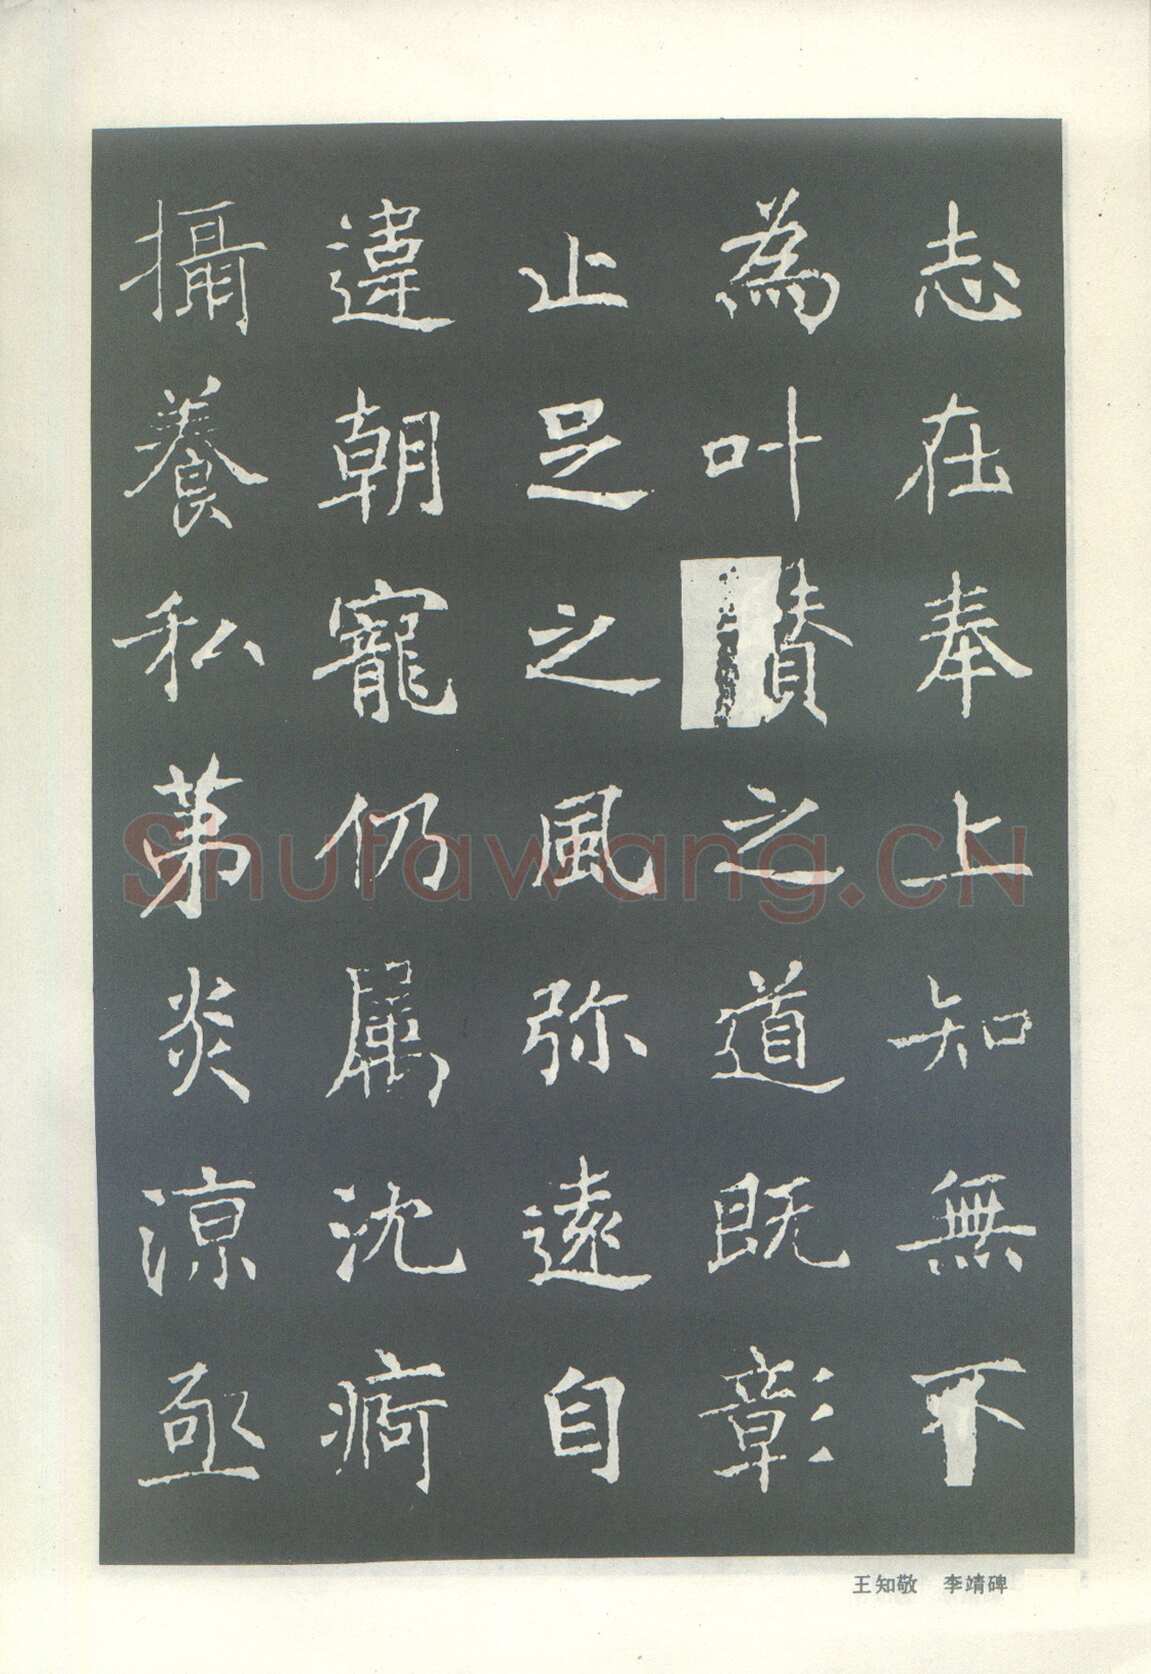 志在奉上知無不
為叶賛之道既彰
止足之風弥遠自
違朝寵仍属沈痾
攝養私第炎涼亟
王知敬 李靖碑
Shufawang.CN